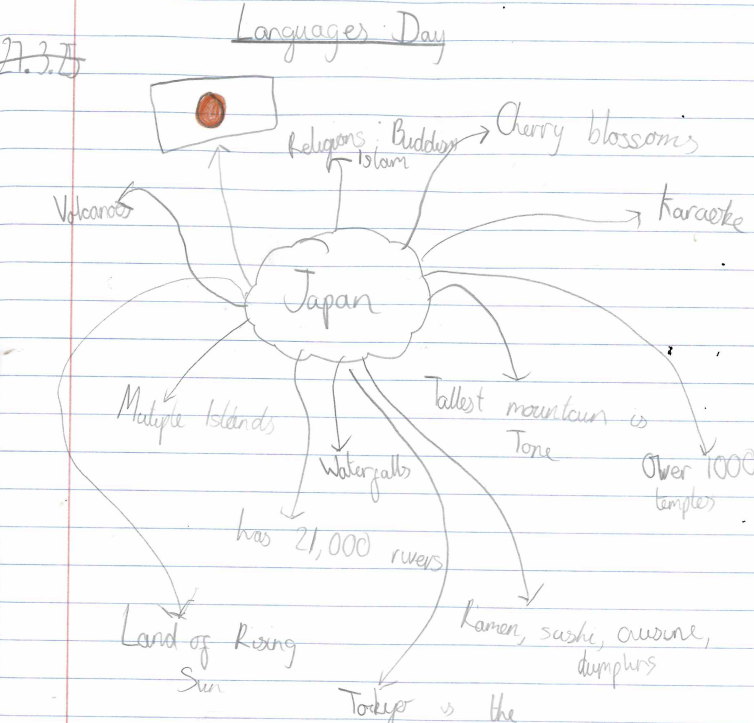 Languages Day
27.3.25
Religions: Buddism
Islam
Cherry blossoms
Volcanoes
Karaoke
Japan
Mutiple Islands
Tallest mountain is
Tone
Waterfalls
Over 1000
temples
has 21,000 rivers
Land of Rising
Sun
Ramen, sushi, cusine,
Tokyo is the